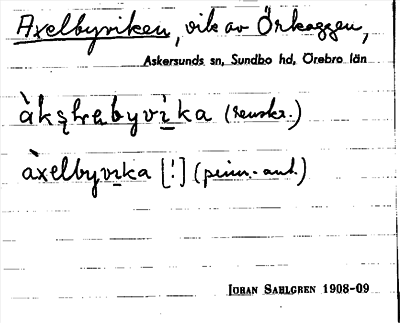 Axelbyviken, vik av Örkaggen,
Askersunds sn, Sundbo hd, Örebro län
(renskr.)
àxelbyvi̲ka [!] (prim.-ant.)
JOHAN SAHLGREN 1908-09